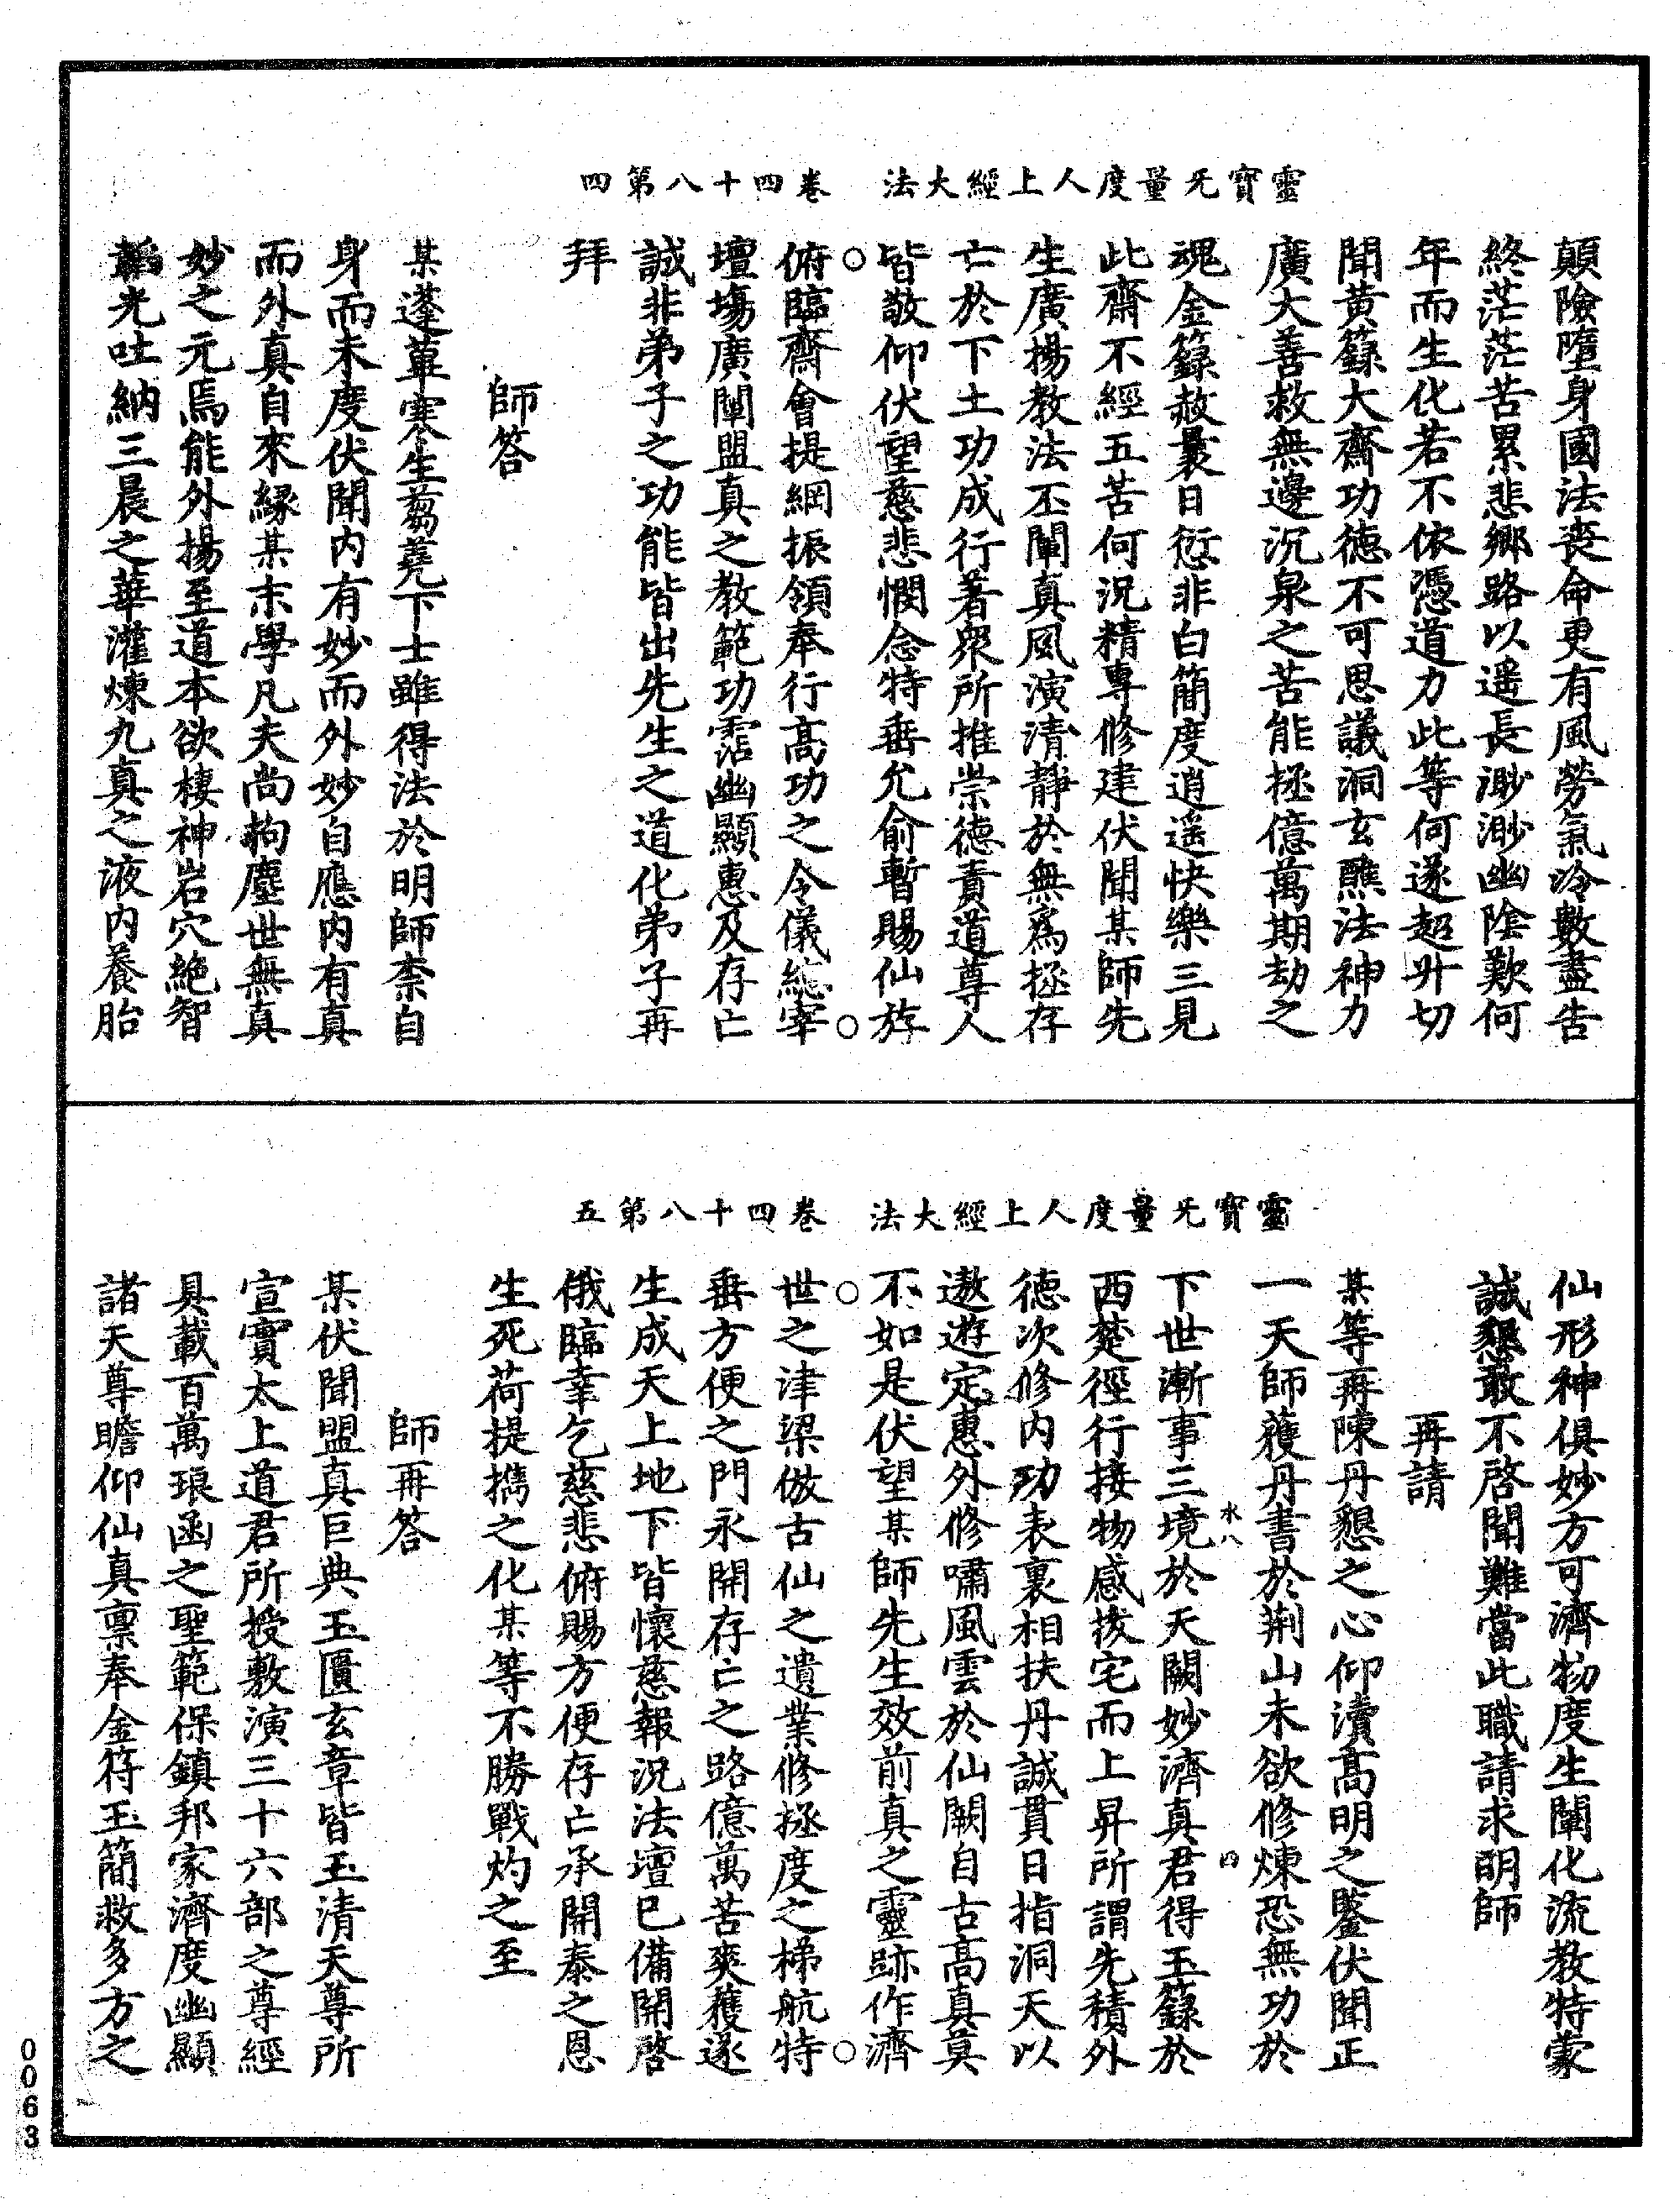 靈寳旡量度人上經大法 卷四十八第四
顛險墮身國法喪命更有風勞氣冷數盡告
終茫茫苦累悲鄉路以遥長渺渺幽陰歎何
年而生化若不依憑道力此等何遂超升切
聞黄籙大齋功德不可思議洞玄醮法神力
廣大善救無邊沉泉之苦能拯億萬期劫之
魂金籙赦曩日愆非白簡度逍遥快樂三見
此齋不經五苦何況精專修建伏聞某師先
生廣揚教法丕闡真風演清靜於無爲拯存
亡於下土功成行著衆所推崇德責道尊人
皆敬仰伏望慈悲憫念特垂允俞暫賜仙斿
俯臨齋會提綱振領奉行髙功之令儀緫宰
壇塲廣闡盟真之教範功霑幽顯惠及存亡
誠非弟子之功能皆出先生之道化弟子再
拜
師答
某蓬蓽寒生蒭蕘下士雖得法於明師柰自
身而未度伏聞内有妙而外妙自應内有真
而外真自來縁某末學凡夫尚拘塵世無真
妙之元焉能外揚至道本欲棲神岩穴絶智
韜光吐納三晨之華灌煉九真之液内養胎
靈寳旡量度人上經大法 卷四十八第五
仙形神俱妙方可濟物度生闡化流教特蒙
誠懇敢不啓聞難當此職請求明師
再請
某等再陳丹懇之心仰瀆髙明之鑒伏聞正
一天師蕧丹書於荆山未欲修煉恐無功於
水八
下世漸事三境於天闕妙濟真君得玉籙於
四
西楚徑行接物感拔宅而上昇所謂先積外
德次修内功表裏相扶丹誠貫日指洞天以
遨遊定惠外修嘯風雲於仙闕自古髙真莫
不如是伏望某師先生效前真之靈跡作濟
世之津梁倣古仙之遺業修拯度之梯航特
垂方便之門永開存亡之路億萬苦爽蒦遂
生成天上地下皆懷慈報況法壇已備開啓
俄臨幸乞慈悲俯賜方便存亡承開泰之恩
生死荷提携之化某等不勝戰灼之至
師再答
某伏聞盟真巨典玉匱玄章皆玉清天尊所
宣實太上道君所授敷演三十六部之尊經
具載百萬琅函之聖範保鎮邦家濟度幽顯
諸天尊瞻仰仙真禀奉金符玉簡救多方之
0063